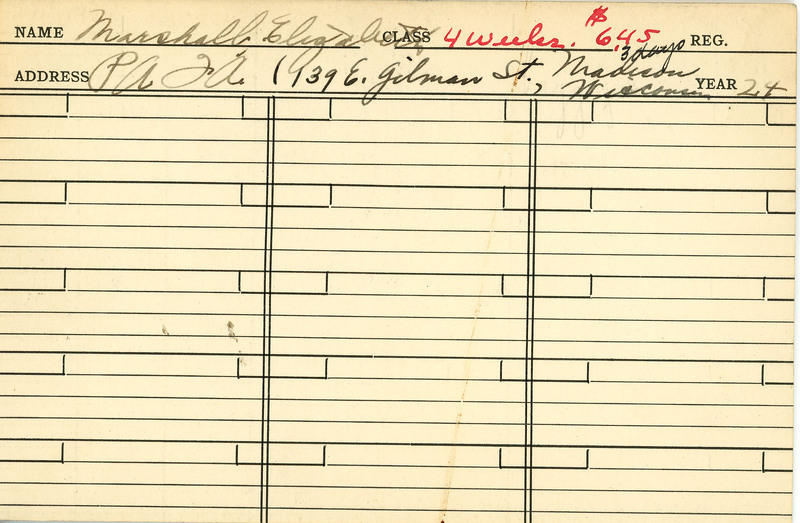 NAME Marshall, Elizabeth CLASS 4 Weeks. $6.45 REG.
3 days
ADDRESS P.A. F.A. (139 E. Gilman St., Madison
Wisconsin YEAR 24